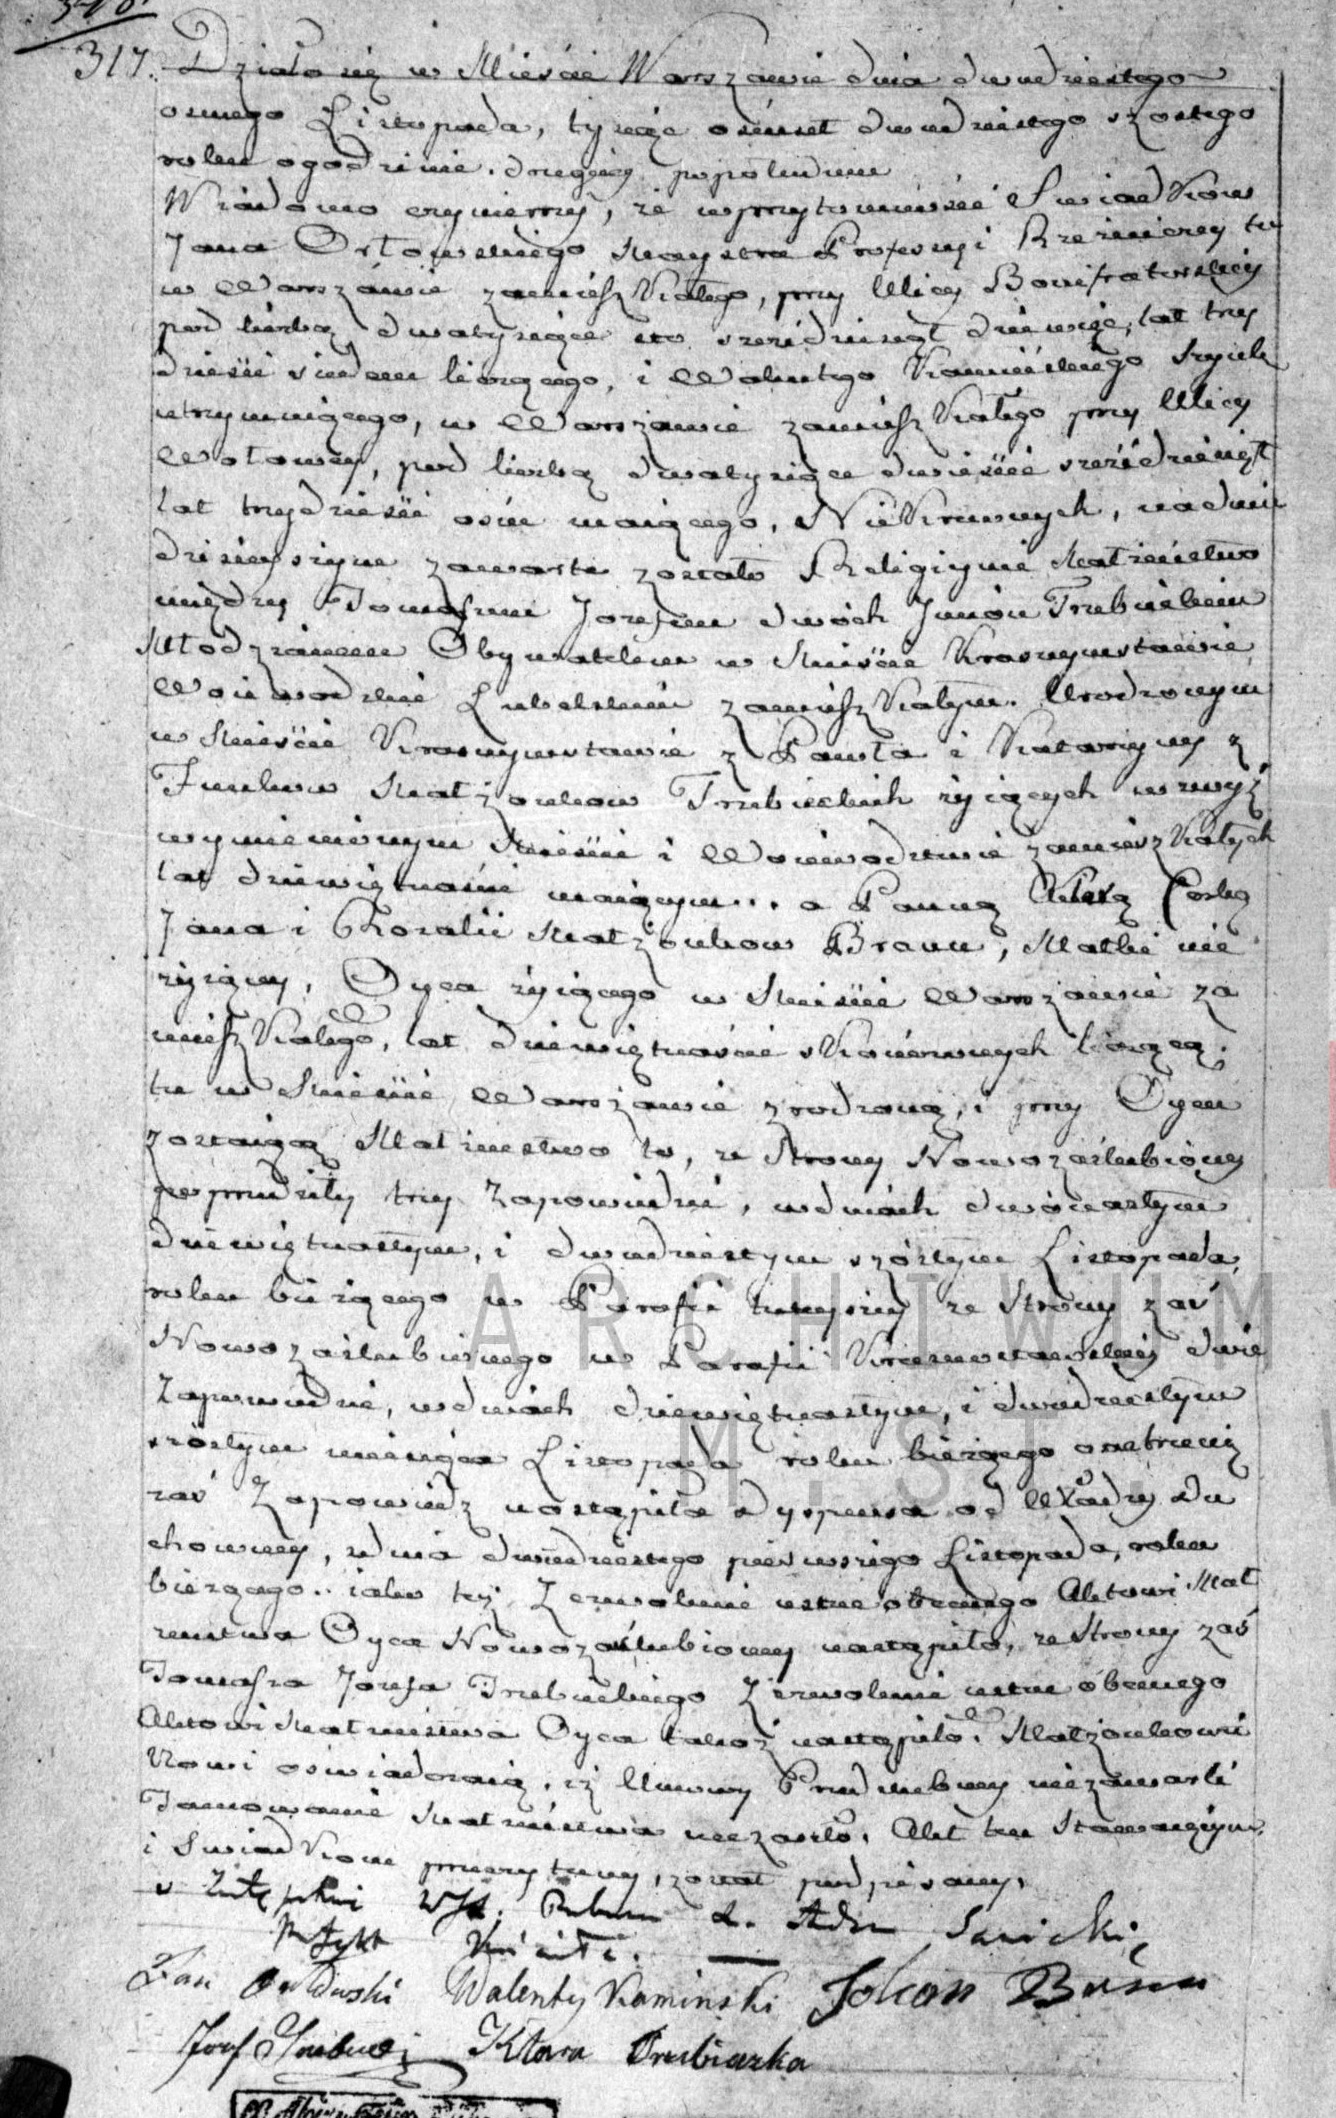 317. Działo się w Mieście Warszawie dnia dwudziestego
osmego Listopada, tysiąc osimset dwudziestego szostego
roku o godzinie drugiey popołudniu
Wiadomo czyniemy, że w przytomności Swiadków
Jana Orłowskiego Maystra Profesyi Rzeźniczey tu
w Warszawie zamieszkałego, przy Ulicy Bonifraterskiey
pod liczbą dwa tysiące sto sześćdziesiąt dziewięć, lat trzy
dzieści siedem liczącego, i Walentego Kamińskiego Szynk
utrzymuiącego, w Warszawie zamieszkałego przy Ulicy
Wołowey, pod liczbą dwa tysiące dwieście sześćdziesiąt
lat trzydzieści osim maiącego, Niekrewnych, na dniu
dzisieyszym zawarte zostało Religiyne Małżeństwo
między Tomaszem Jozefem dwóch Imion Trubieckim
Młodzianem Obywatelem w Mieście Krasnymstawie
Woiewodztwie Lubelskim zamieszkałym. Urodzonym
w Mieście Krasnymstawie z Pawła i Katarzyny z
Małżonkow Trubieckich żyiących w wyż
wymienionym Mieście i Woiewodztwie zamieszkałych
lat dziewiętnaście maiącym... a Panną Klarą Corką
Jana i Rozalii Małżonkow Braun, Matki nie
żyiącey, Oyca żyiącego w Mieście Warszawie za
mieszkałego, lat dziewiętnaście skończonych liczącą,
tu w Mieście Warszawie zrodzoną, i przy Oycu
zostaiącą Małżeństwo to, ze Strony Nowozaślubioney
poprzedziły trzy Zapowiedzi, w dniach dwónastym
dziewiętnastym, i dwudziestym szóstym Listopada
roku bieżącego w Parafii tuteyszey ze Strony zaś
Nowozaślubionego w Parafii Krasnostawskiey dwie
Zapowiedzi, w dniach dziewiętnastym, i dwudziestym
szóstym miesiąca Listopada roku bieżącego od trzeciey
zaś Zapowiedz nastąpiła dyspensa od Władzy Du
chowney, z dnia dwudziestego pierwszego Listopada, roku
bieżącego.. iako też Zezwolenie ustne obecnego Aktowi Mał
żeństwa Oyca Nowozaślubioney nastąpiło, ze Strony zaś
Tomasza Jozefa Trubieckiego Zezwolenie ustne obecnego
Aktowi Małżeństwa Oyca takoż nastąpiło. Małżonkowie
Nowi oświadczaią, iż Umowy Przedślubney nie zawarli
Tamowanie Małżeństwa nie zaszło. Akt ten Stawaiącym
i Swiadkom przeczytany, został podpisany.
Sawicki
Jan Orłowski Walenty Kaminski Johan Braun
Jozef Trubiecki Klara Trubiacka
ARCHIWUM
M. ST. W